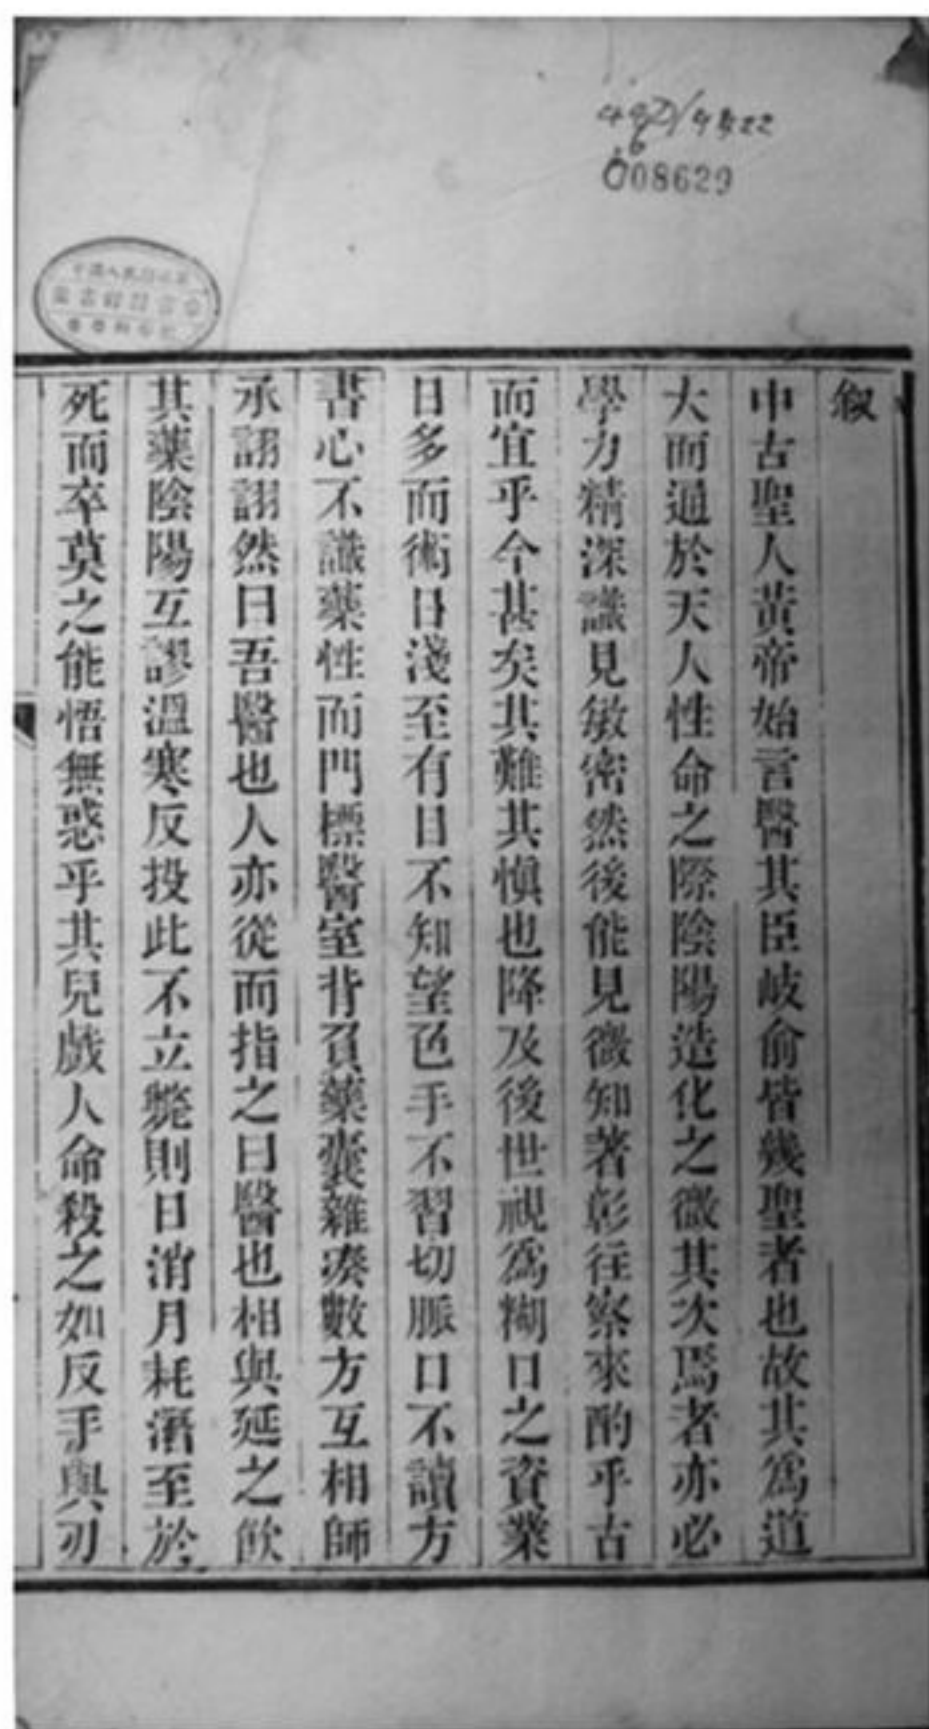 008629
敘
中古聖人黃帝始言醫其臣岐俞皆幾聖者也故其爲道
大而通於天人性命之際陰陽造化之微其次焉者亦必
學力精深識見敏密然後能見微知著彰往察來酌乎古
而宜乎今甚矣其難其愼也降及後世視爲糊口之資業
日多而術日淺至有目不知望色手不習切脈口不讀方
書心不識藥性而門標醫室背負藥囊雜湊數方互相師
承詡詡然曰吾醫也人亦從而指之曰醫也相與延之飮
其藥陰陽互謬溫寒反投此不立斃則日消月耗潛至於
死而卒莫之能悟無惑乎其兒戲人命殺之如反手與刃